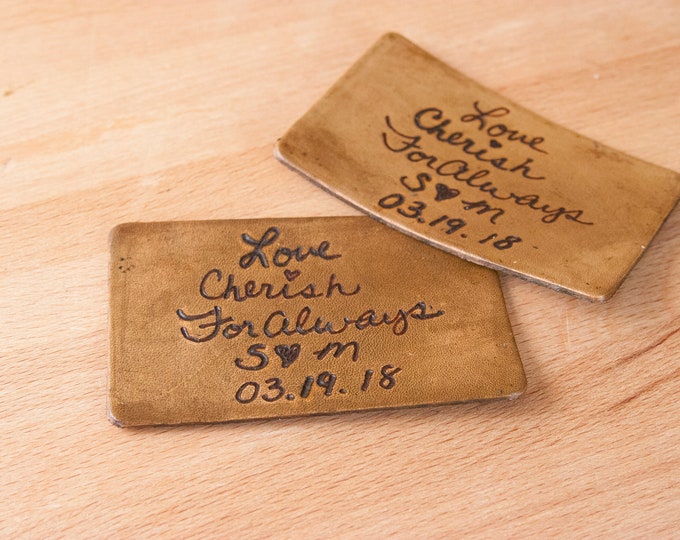 Love
Cherish
For Always
S ♥ M
03.19.18
Love
Cherish
For Always
S ♥ M
03.19.18